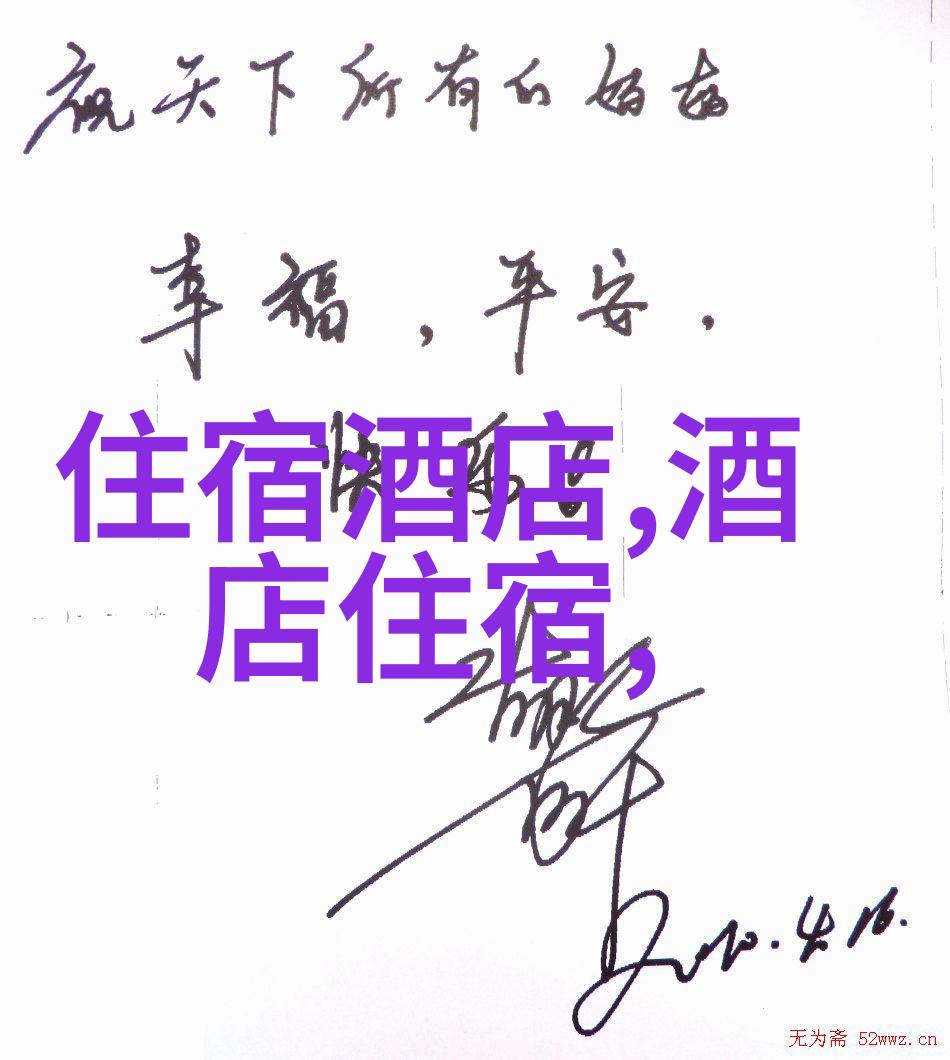 祝天下所有的妈妈
幸福，平安，
快乐！
住宿酒店,酒
店住宿,
2010.4.16.
无为斋 52wwz.cn